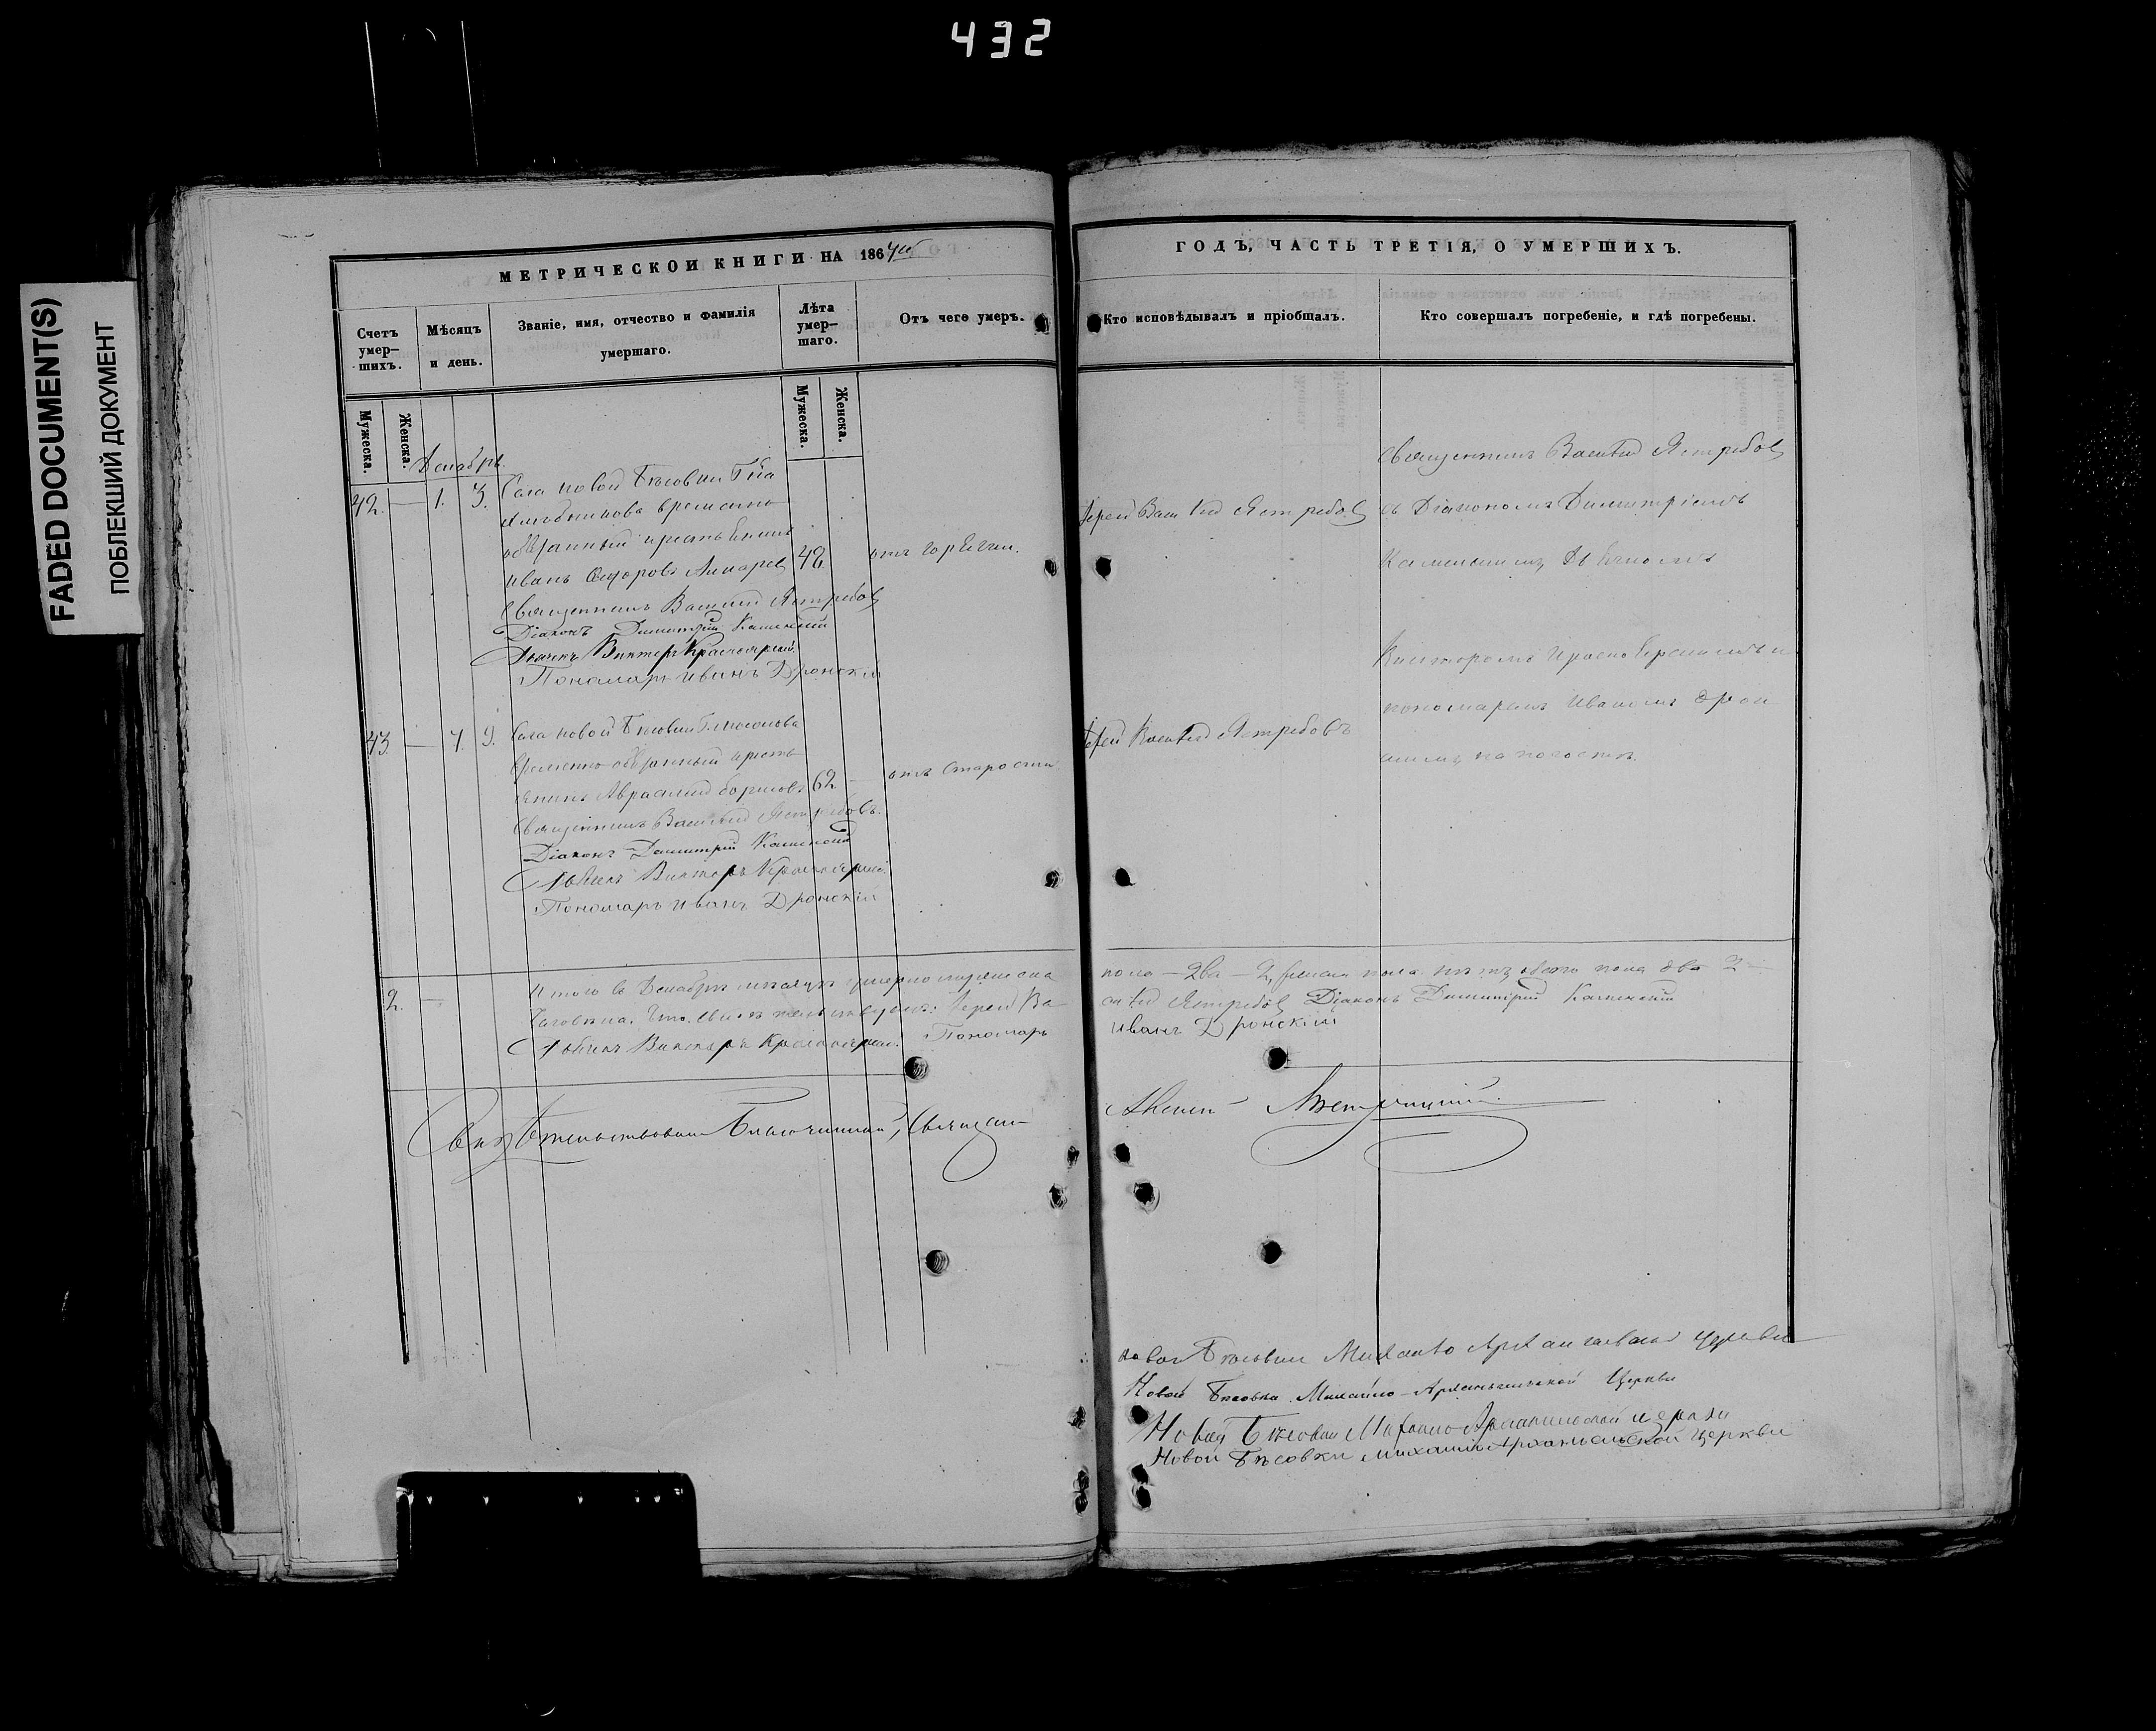 432
FADED DOCUMENT(S)
ПОБЛЕКШИЙ ДОКУМЕНТ
МЕТРИЧЕСКОЙ КНИГИ НА 1864й
ГОДЪ, ЧАСТЬ ТРЕТІЯ, О УМЕРШИХЪ.
Счетъ умер-
шихъ.
Мѣсяцъ
и день.
Званіе, имя, отчество и фамилія
умершаго.
Лѣта
умер-
шаго.
Отъ чего умеръ.
Кто исповѣдывалъ и пріобщалъ.
Кто совершалъ погребеніе, и гдѣ погребены.
Мужеска.
Женска.
Мужеска.
Женска.
Декабрь
42. — 1. 3.
Села Новой Бѣсовки Гна
временно
обязанный крестьянинъ
Иванъ
42
отъ горячки.
Священникъ Василій Ястребовъ
Діаконъ Димитрій Каменскій
Дьячекъ Викторъ Красноярскій
Пономарь Иванъ Дронскій
Іерей Василій Ястребовъ
Священникъ Василій Ястребовъ
съ Діакономъ Димитріемъ
Каменскимъ, Дьячкомъ
Викторомъ и
пономаремъ Иваномъ Дрон
скимъ, на погостѣ.
43. — 7. 9.
Села Новой Бѣсовки
временно обязанный кресть
янинъ Аврамій Борисовъ
62
отъ старости
Священникъ Василій Ястребовъ.
Діаконъ Димитрій Каменскій
Дьячекъ Викторъ
Пономарь Иванъ Дронскій
Іерей Василій Ястребовъ
2. —
Итого въ Декабрѣ мѣсяцѣ умерло мужеска
пола — два — 2, женска пола нѣтъ, обоего пола два 2
человѣка. Что свидѣтельствуемъ: Іерей Ва-
силій Ястребовъ Діаконъ Димитрій Каменскій
Дьячекъ Викторъ Пономарь
Иванъ Дронскій
Свидѣтельствовалъ Благочинный, Священ-
Новой Бѣсовки Михаило Архангельской церкви
Новой Бѣсовки Михайло-Архангельской Церкви
Новой Бѣсовки Михаило Архангельской церкви
Новой Бѣсовки Михаило Архангельской Церкви